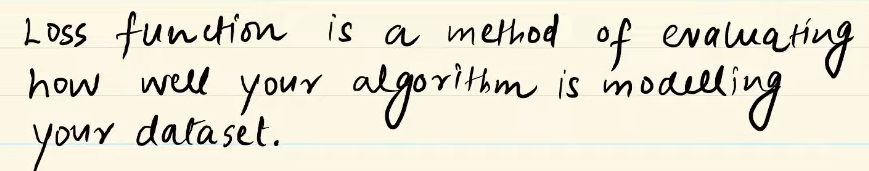 Loss function is a method of evaluating
how well your algorithm is modelling
your dataset.